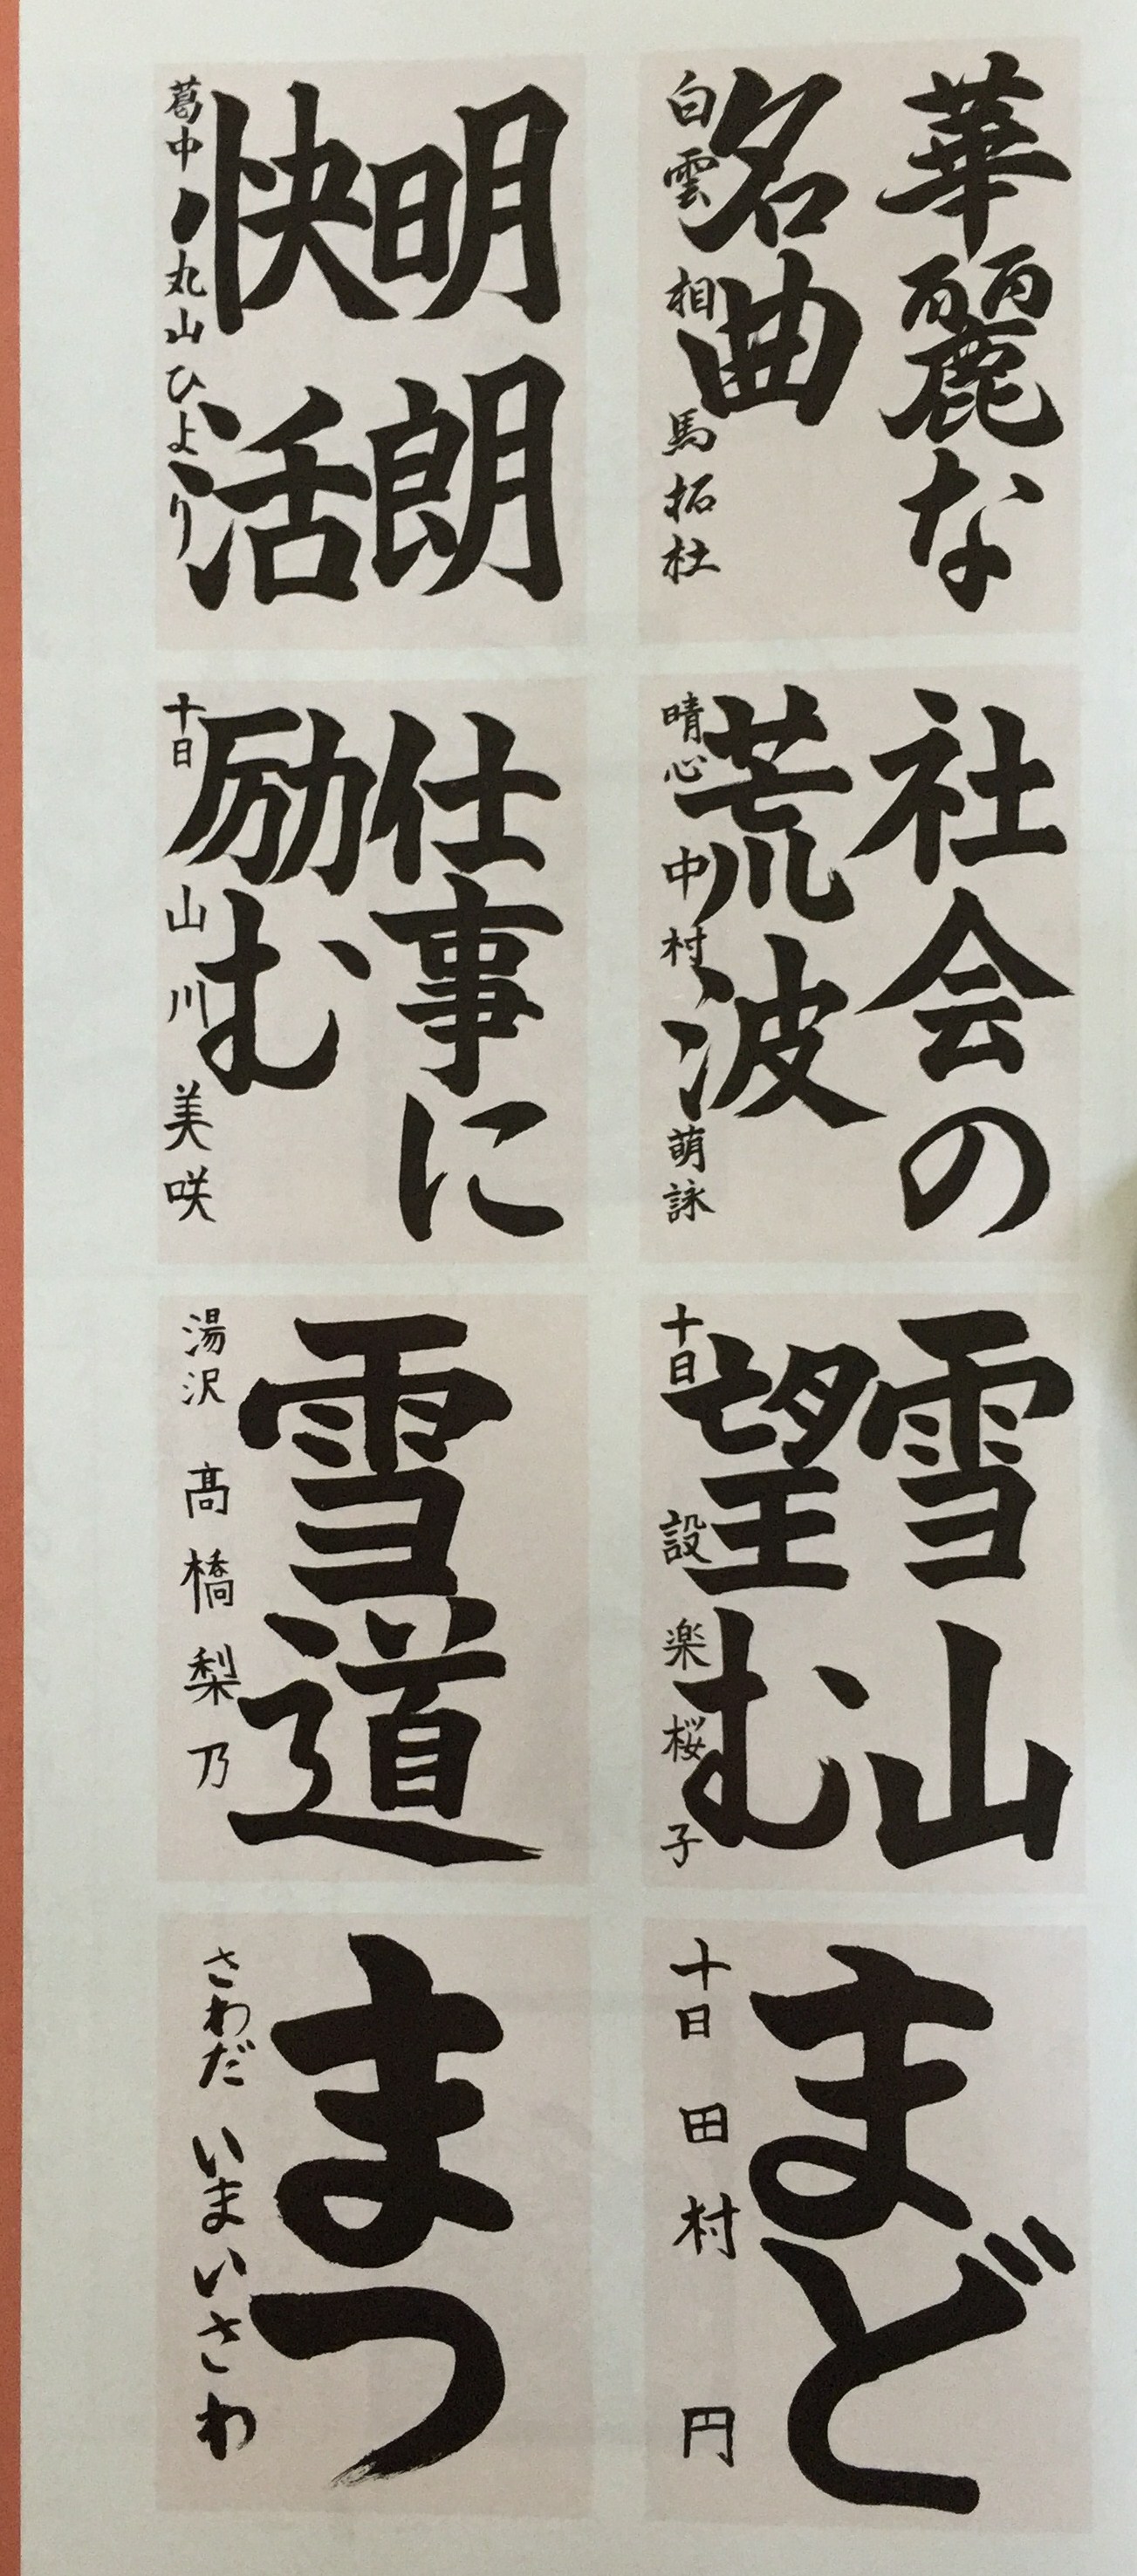 華麗な
名曲
白雲 相馬拓杜
明朗
快活
葛中 小丸山ひより
社会の
荒波
晴心 中村萌詠
仕事に
励む
十日 山川美咲
雪山
望む
十日 設楽桜子
雪道
湯沢 髙橋梨乃
まど
十日 田村円
まつ
さわだ いまいさわ